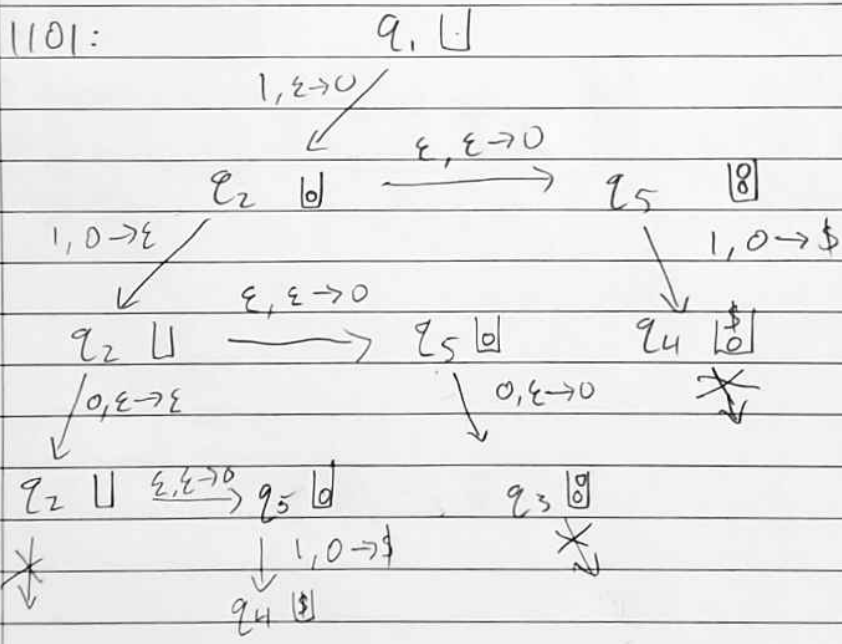 1101: q₁
1, ε→0
ε, ε→0
q₂ 0 q₅ 0 0
1, 0→ε 1, 0→$
ε, ε→0
q₂ q₅ 0 q₄ $ 0
0, ε→ε 0, ε→0
q₂ ε, ε→0 q₅ 0 q₃ 0 0
1, 0→$
q₄ $